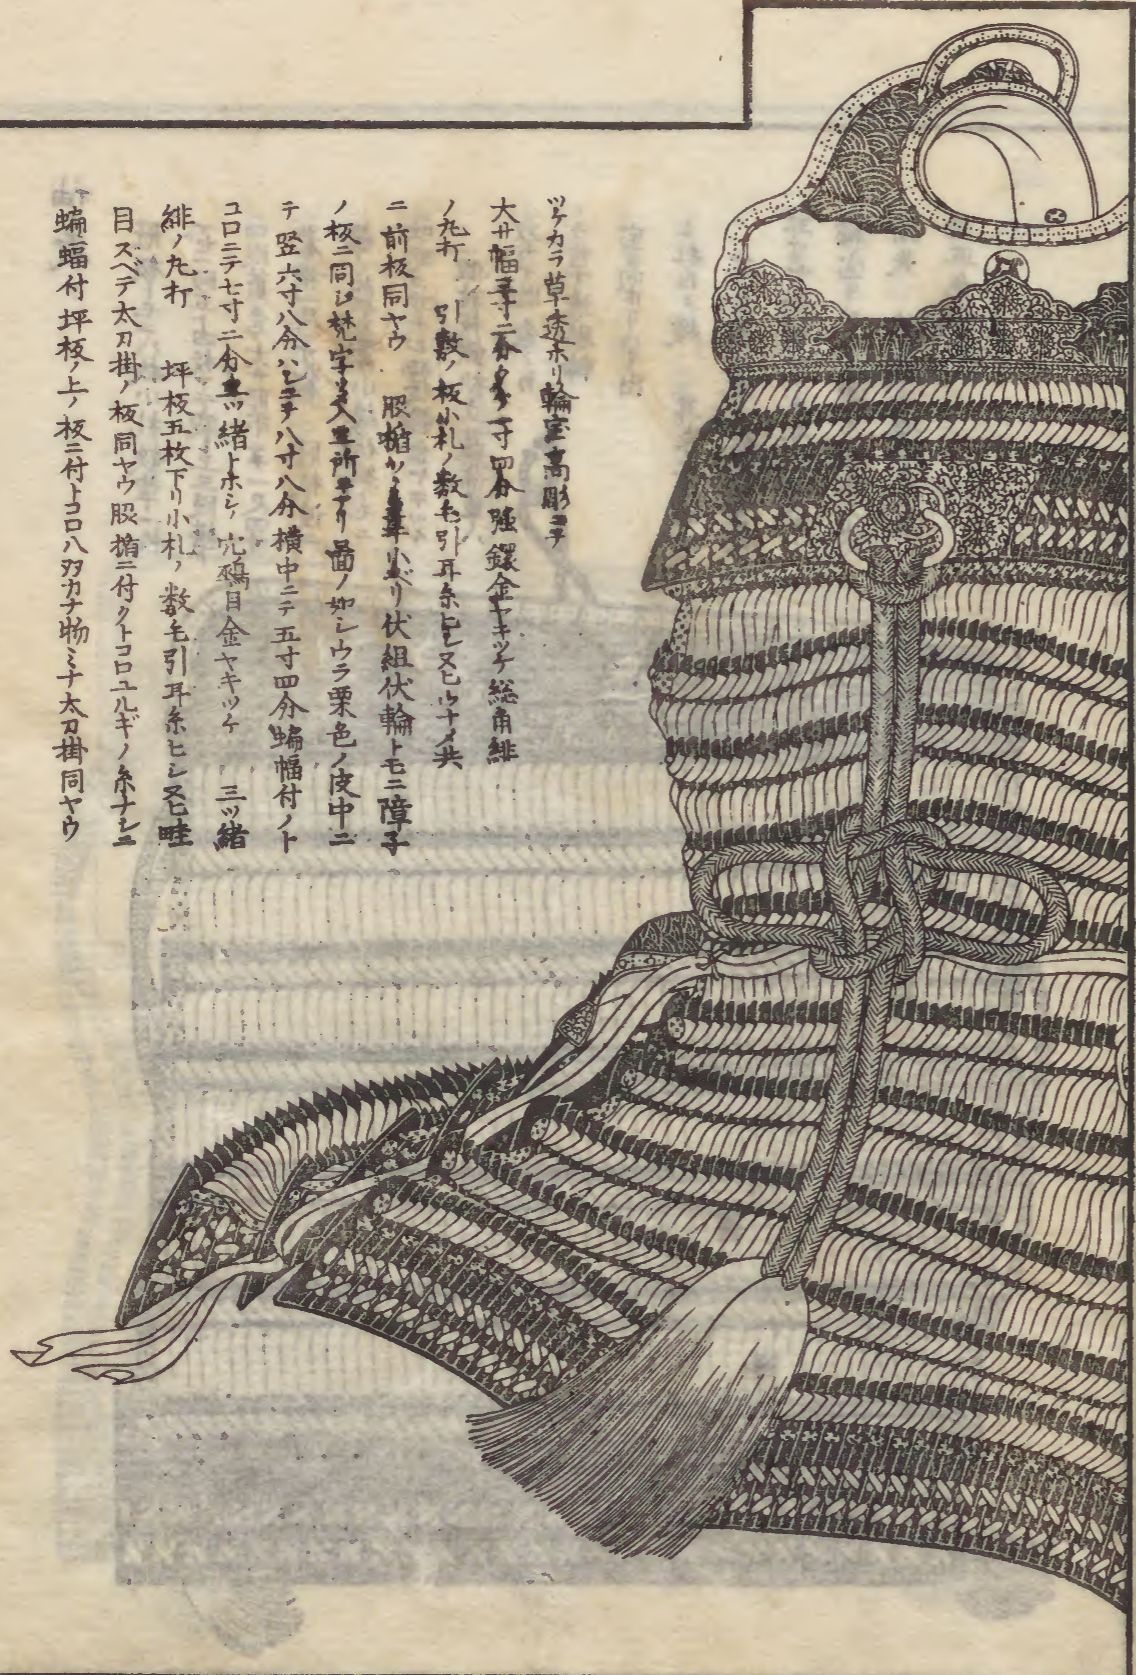 ツケカラ草透ホリ輪宝高彫ニテ
大サ幅三寸二分タケ一寸四分強鐶金ヤキツケ総角緋
ノ丸打 引敷ノ板小札ノ数毛引耳糸ヒシ又ヒウナメ共
ニ前板同ヤウ 股楯カラ革小ベリ伏組伏輪トモニ障子
ノ板ニ同シ梵字入 所 図ノ如シウラ栗色ノ皮中ニ
テ竪六寸八分ハシニテ八寸八分横中ニテ五寸四分蝙蝠付ノト
コロニテ七寸二分 三ツ緒トホシノ穴鵐目金ヤキツケ 三ツ緒
緋ノ丸打 坪板五枚下リ小札ノ数毛引耳糸ヒシ又ヒ畦
目スベテ太刀掛ノ板同ヤウ股楯ニ付クトコロユルギノ糸ナシニ
蝙蝠付坪板ノ上ノ板ニ付トコロ八双カナ物ミナ太刀掛同ヤウ